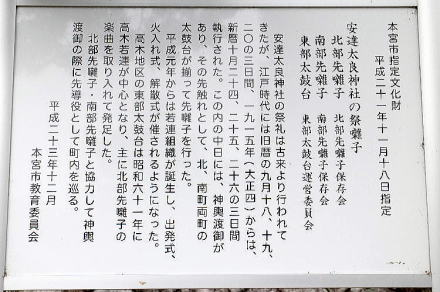 本宮市指定文化財
平成二十一年十一月十八日指定
安達太良神社の祭囃子
北部先囃子 北部先囃子保存会
南部先囃子 南部先囃子保存会
東部太鼓台 東部太鼓台運営委員会
安達太良神社の祭礼は古来より行われて
きたが、江戸時代には旧暦の九月十八、十九、
二〇の三日間、一九一五年（大正四）からは、
新暦十月二十四、二十五、二十六の三日間
執行された。この内の中日には、神輿渡御が
あり、その先触れとして、北、南町両町の
太鼓台が揃って先囃子を行った。
平成元年からは若連組織が誕生し、出発式、
火入れ式、解散式が催されるようになった。
高木地区の東部太鼓台は昭和六十一年に
高木若連が中心となり、主に北部先囃子の
楽曲を取り入れて発足した。
北部先囃子・南部先囃子と協力して神輿
渡御の際に先導役として町内を巡る。
平成二十三年十二月
本宮市教育委員会